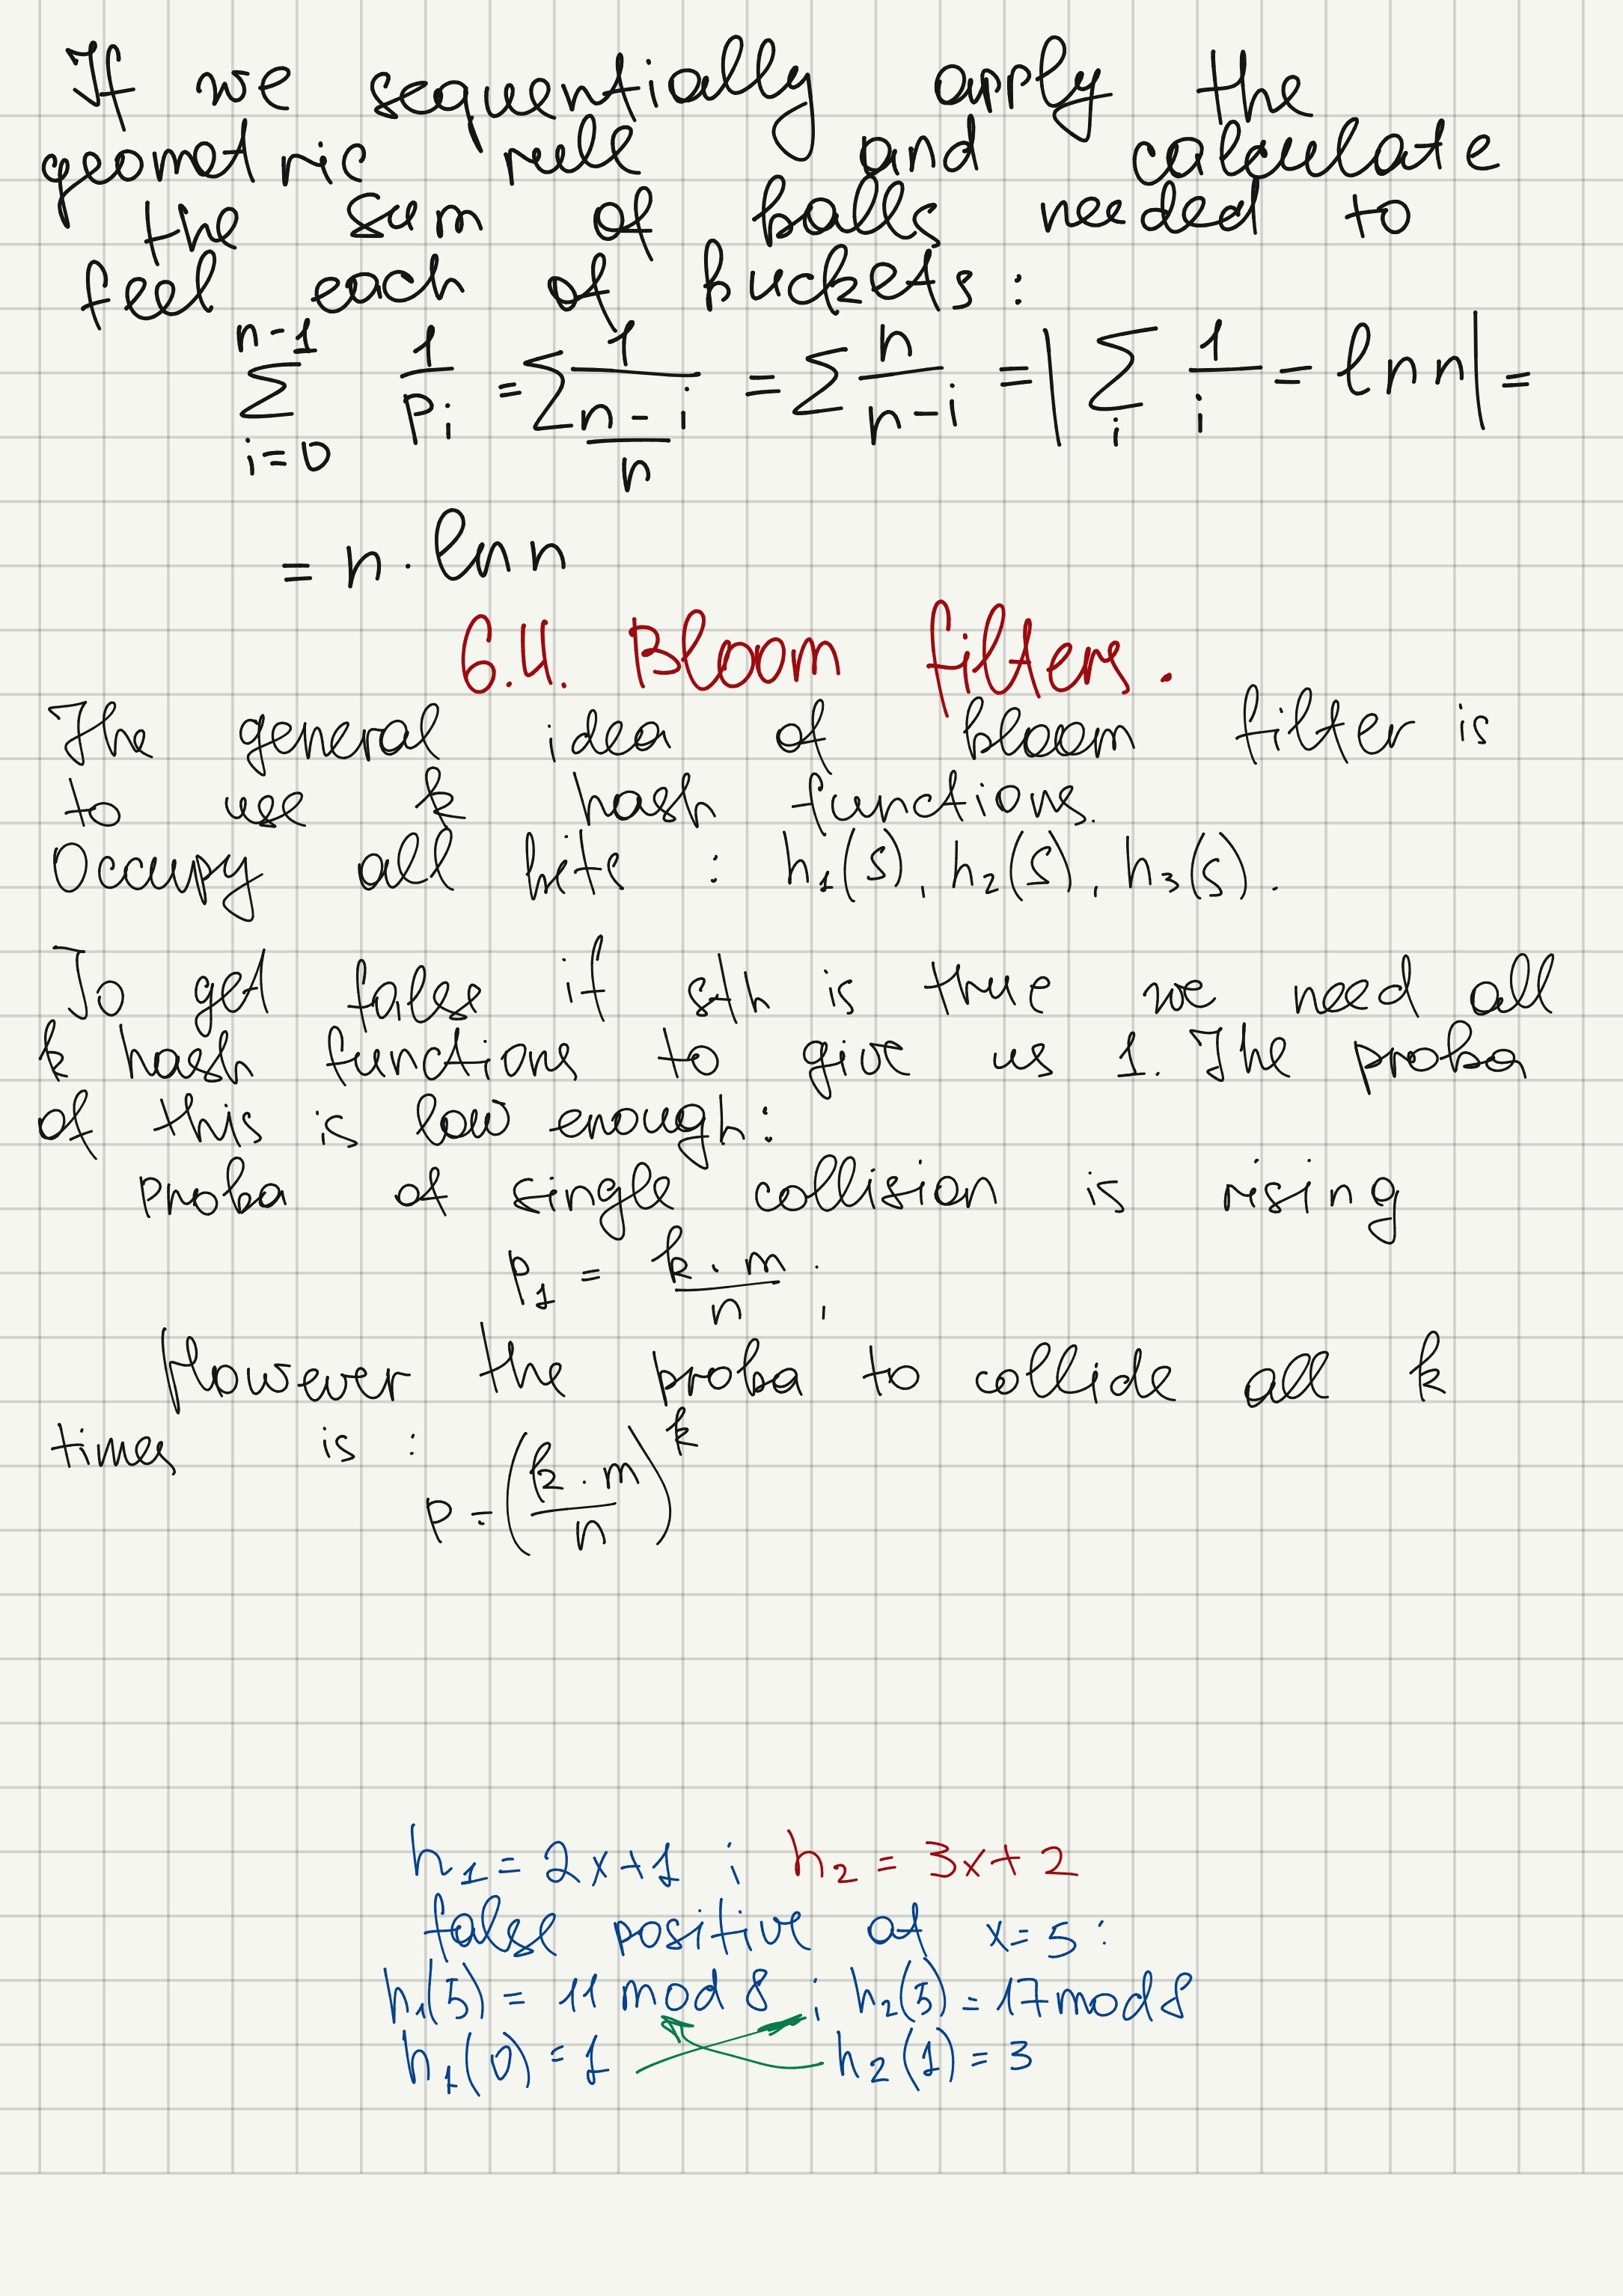 If we sequentially apply the
geometric rull and calculate
the sum of balls needed to
feel each of buckets:
n-1
∑ 1/Pi = ∑ 1/((n-i)/n) = ∑ n/(n-i) = | ∑ 1/i = ln n | =
i=0 i
= n · ln n
6.4. Bloom filters.
The general idea of bloom filter is
to use k hash functions.
Occupy all bits : h₁(s), h₂(s), h₃(s).
To get false if sth is true we need all
k hash functions to give us 1. The proba
of this is low enough:
proba of single collision is rising
P₁ = k·m/n ;
However the proba to collide all k
times is :
P = (k·m/n)^k
h₁ = 2x+1 ; h₂ = 3x+2
false positive at x=5:
h₁(5) = 11 mod 8 ; h₂(5) = 17 mod 8
h₁(0) = 1 h₂(1) = 3